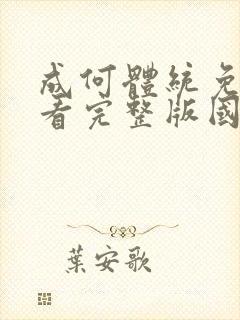 成何體統免
看完整版國
葉安歌